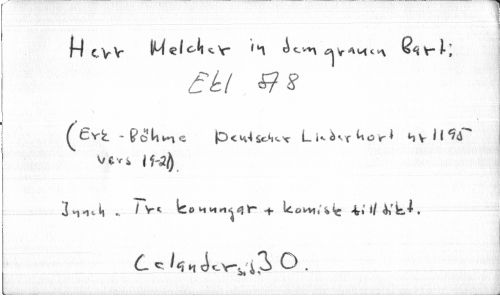 Herr Melcher in dem grauen Bart;
Ekl 578
(Erk-Böhme Deutscher Liederhort nr 1195
vers 19-21).
Inneh. Tre konungar + komisk tilldikt.
Celander sid. 30.